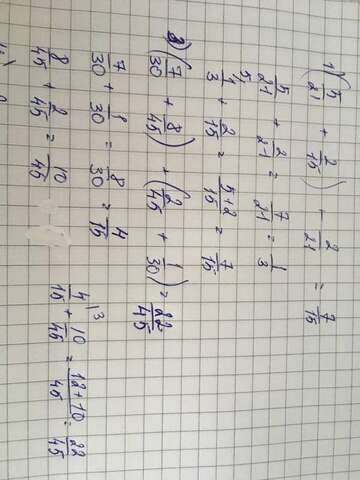 1) (5/21 + 2/15) + 2/21 = 7/15
5/21 + 2/21 = 7/21 = 1/3
1/3 ^5/ + 2/15 = 5+2/15 = 7/15
2) (7/30 + 8/45) + (2/45 + 1/30) = 22/45
7/30 + 1/30 = 8/30 = 4/15
8/45 + 2/45 = 10/45
4/15 ^\3 + 10/45 = 12+10/45 = 22/45